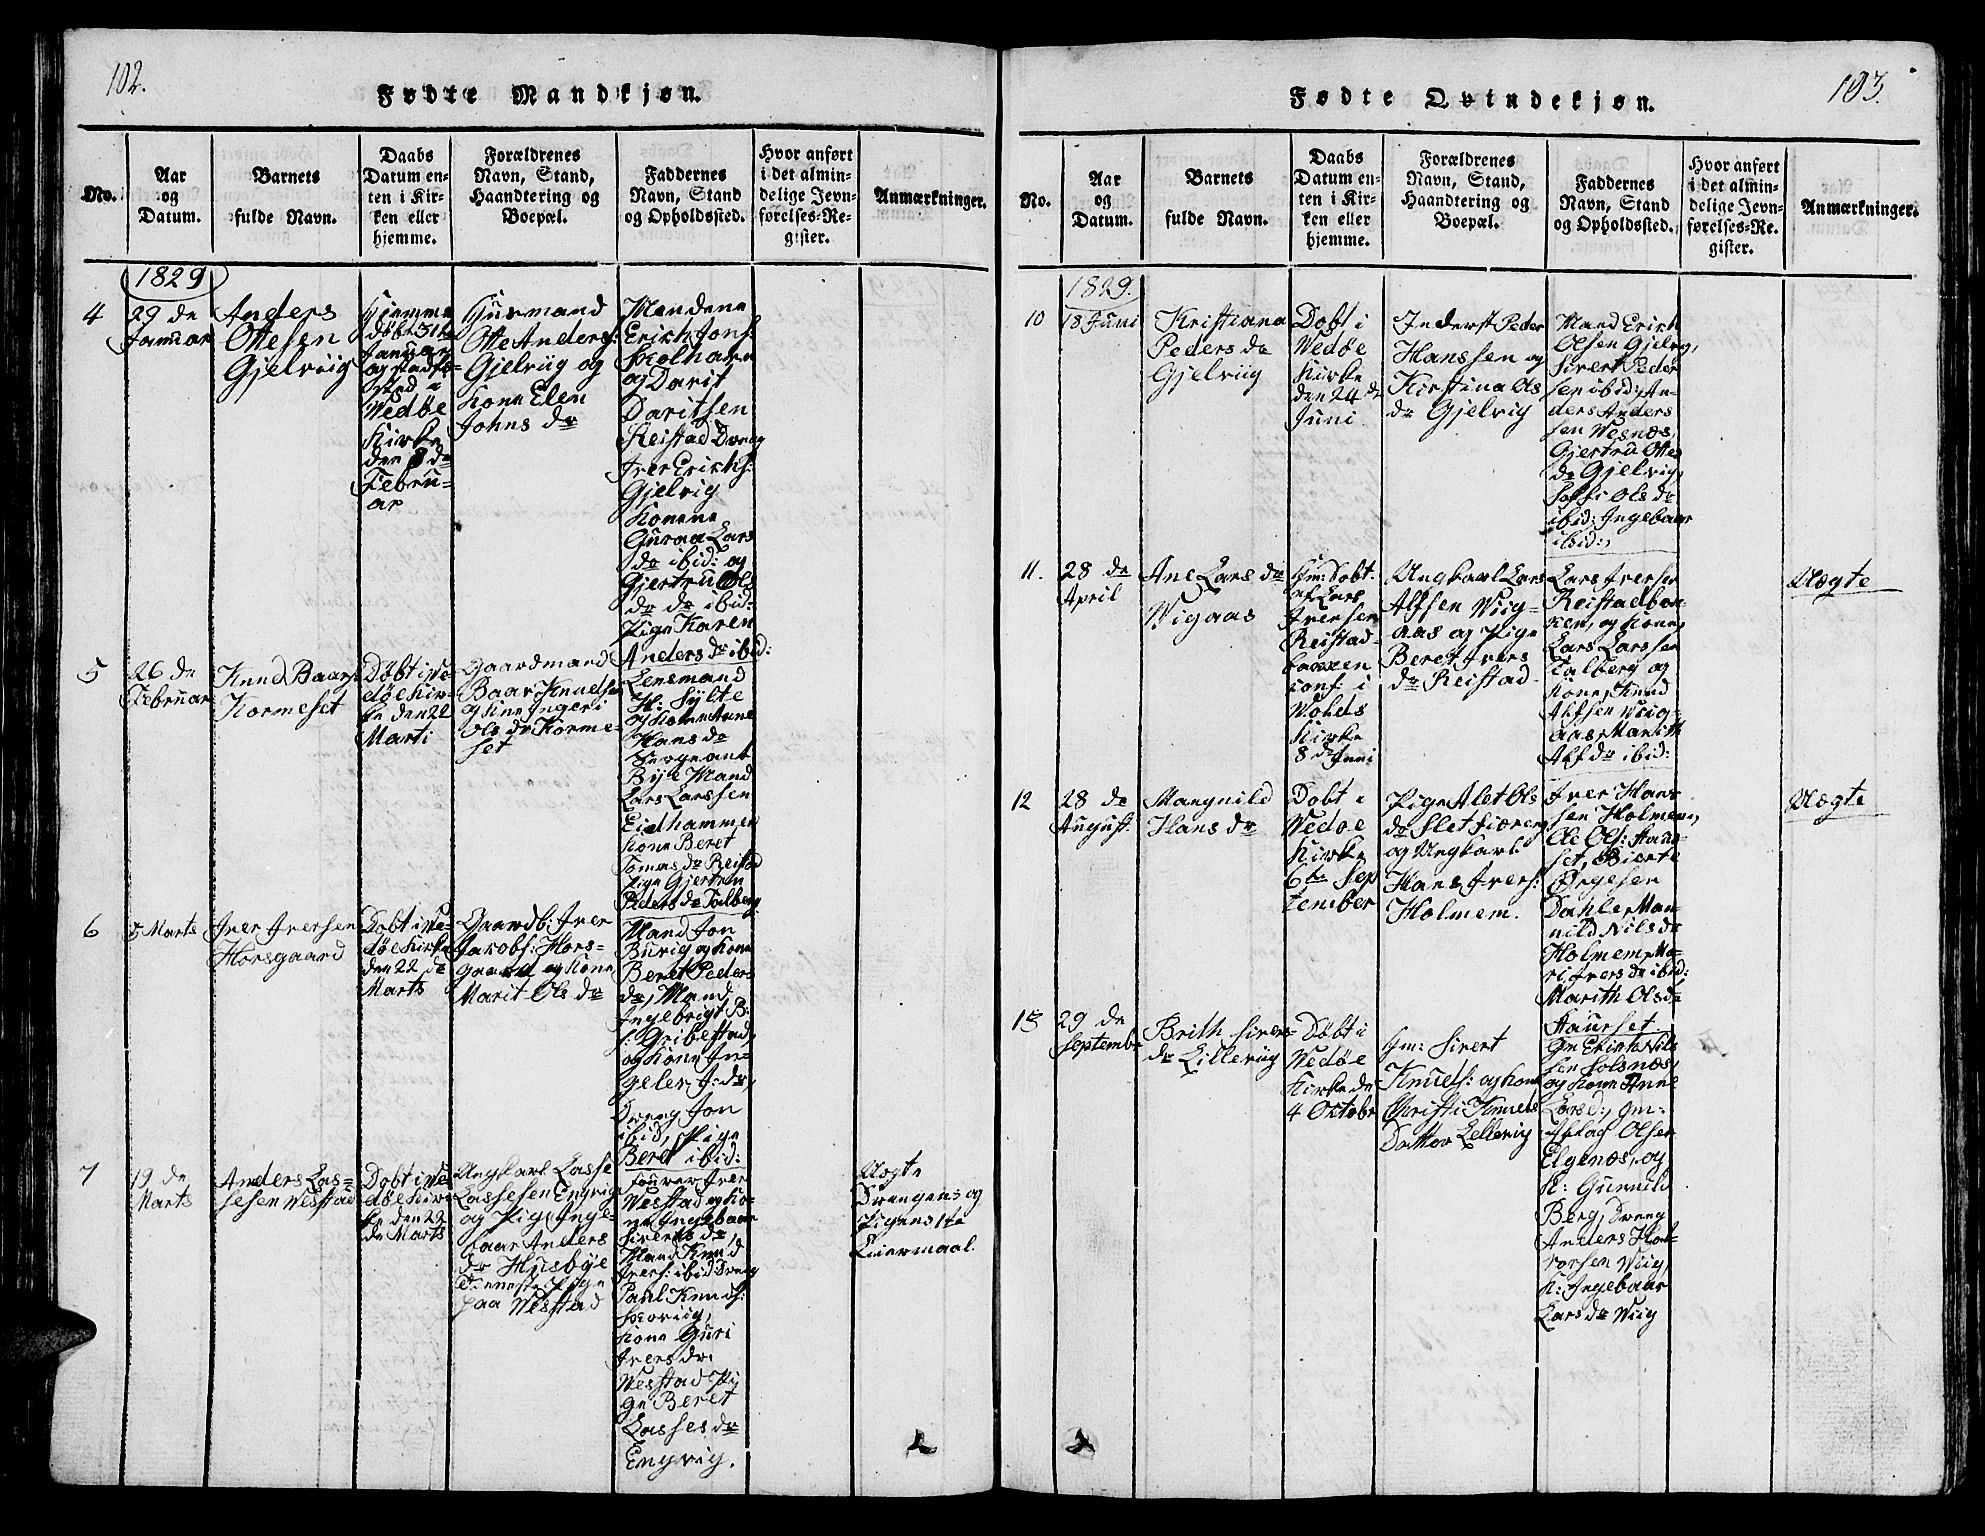 102.
Fødte Mandkjøn.
No.
Aar
og
Datum.
Barnets
fulde Navn.
Daabs
Datum en-
ten i Kir-
ken eller
hjemme.
Forældrenes
Navn, Stand,
Haandtering og
Boepæl.
Faddernes
Navn, Stand
og Opholdssted.
Hvor anført
i det almin-
delige Jevn-
førelses-Re-
gister.
Anmærkninger.
1829
4
29 de
Januar
Anders
Ottesen
Gjelviig
Hjemme
døbt 31te
Januar
og stadfæ-
sted i
Wedøe
Kirke
den 8 de
Febru-
ar
Huusmand
Otte Anders:
Gjelviig og
Kone Elen
Johns dr
Mændene
Erik Jons:
Skolhamn
og Davit
Davitsen
Reistad Dreng
Iver Eriks:
Gjelvig
Konene
Guraa Lars
dr ibid: og
Gjertru Ols
dr dr ibid:
Pige Karen
Anders dr ibid:
5
26 de
Februar
Knud Baars:
Kormeset
Døbt i We-
døe Kir-
ke den 22
Marti
Gaardmand
Baar Knudsen
og Kone Ingeri
Ols dr Korme-
set
Lensmand
H: Sylte
og Kone Anne
Hans dr
Sergeant
Bye Mand
Lars Larssen
Eidhammer
Kone Beret
Tomas dr Reistad
Pige Gjertru
Peders dr Talberg
6
5 Marts
Iver Iversen
Horsgaard
Døbt i We-
døe Kirke
den 22 de
Marts
Gaardb: Iver
Jakobs: Hors-
gaard og Kone
Marit Ols dr
Mand Jon
Burig og Kone
Beret Peders
dr, Mand
Ingebrigt B:
s: Gribestad,
og Kone In-
geler, J: dr,
Dreng Jon
ibid, Pige
Beret ibid:
7
19 de
Marts
Anders Las-
sesen Wesstad
Døbt i We-
døe Kir-
ke den 22
de Marts
Ungkarl Lasse
Lassesen Engvig
og Pige Inge-
baar Anders
dr Husbye
Tieneste Pige
paa Wesstad
Iver
Wesstad og Ko-
ne Ingebaar
Siverts dr
Mand Knud
Ivers: ibid Dreng
Paul Knuds:
Skoviig,
Kone Guri
Ivers dr
Wesstad Pi-
ge Beret
Lasses dr
Engvig.
Uægte
Drengens og
Pigens 1te
Leiermaal.
103.
Fødte Qvindekjøn.
No.
Aar
og
Datum.
Barnets
fulde Navn.
Daabs
Datum en-
ten i Kir-
ken eller
hjemme.
Forældrenes
Navn, Stand,
Haandtering og
Boepæl.
Faddernes
Navn, Stand
og Opholdssted.
Hvor anført
i det almin-
delige Jevn-
førelses-Re-
gister.
Anmærkninger.
1829.
10
18 Juni
Kristiana
Peders dr
Gjelviig
Døbt i
Wedøe
Kirke
den 24 de
Juni
Inderst Peder
Hanssen og
Kirstina Ols
dr Gjelvig
Mand Erik
Olsen Gjelvig,
Sivert Peder
sen ibid; An-
ders Anders
sen Wesnæs,
Gjertru Ottes
dr Gjelvig,
Soffi Ols dr
ibid: Ingebaar
ibid:
11.
28 de
April
Ane Lars dr
Wigaas
Hm: Døbt
af Lars
Iversen
Reistad-
backen
conf: i
Wolds
Kirke
8 de Juni
Ungkarl Lars
Alfsen Wiig-
aas og Pige
Beret Ivers
dr Reistad
Lars Iversen
Reistadbac-
ken, og Kone,
Lars Larssen
Talberg og
Kone, Knud
Alfsen Wiig-
aas, Marith
Alf dr ibid:
Uægte
12
28 de
August
Mangnild
Hans dr
Døbt i
Wedøe
Kirke
6te Sep
tember
Pige Alet Ols
dr Sletfiæren
og Ungkarl
Hans Ivers:
Holmem.
Iver Hans
sen Holmem,
Ole Ols: Haur-
set, Bierte
Ørgesen
Dahle, Man-
nild Nils dr
Holmem, Ma-
ri Ivers dr ibid:
Marith Ols dr
Haurset
Uægte
13
29 de
Septembr
Brith Sivers-
dr Lilleviig
Døbt i
Wedøe
Kirke de
4 Oktobr
Gm: Sivert
Knuds: og Kone
Christi Knuds
Datter Lillevig
Gm Erik Nils
sen Solsnæs,
og Kone Anne
Larsd:, Gm:
Aslac Olsen
Elgenæs, og
K: Gunnild
Berg, Dreng
Anders Hal-
vorsen Wiig,
K: Ingebaar
Lars dr Wiig